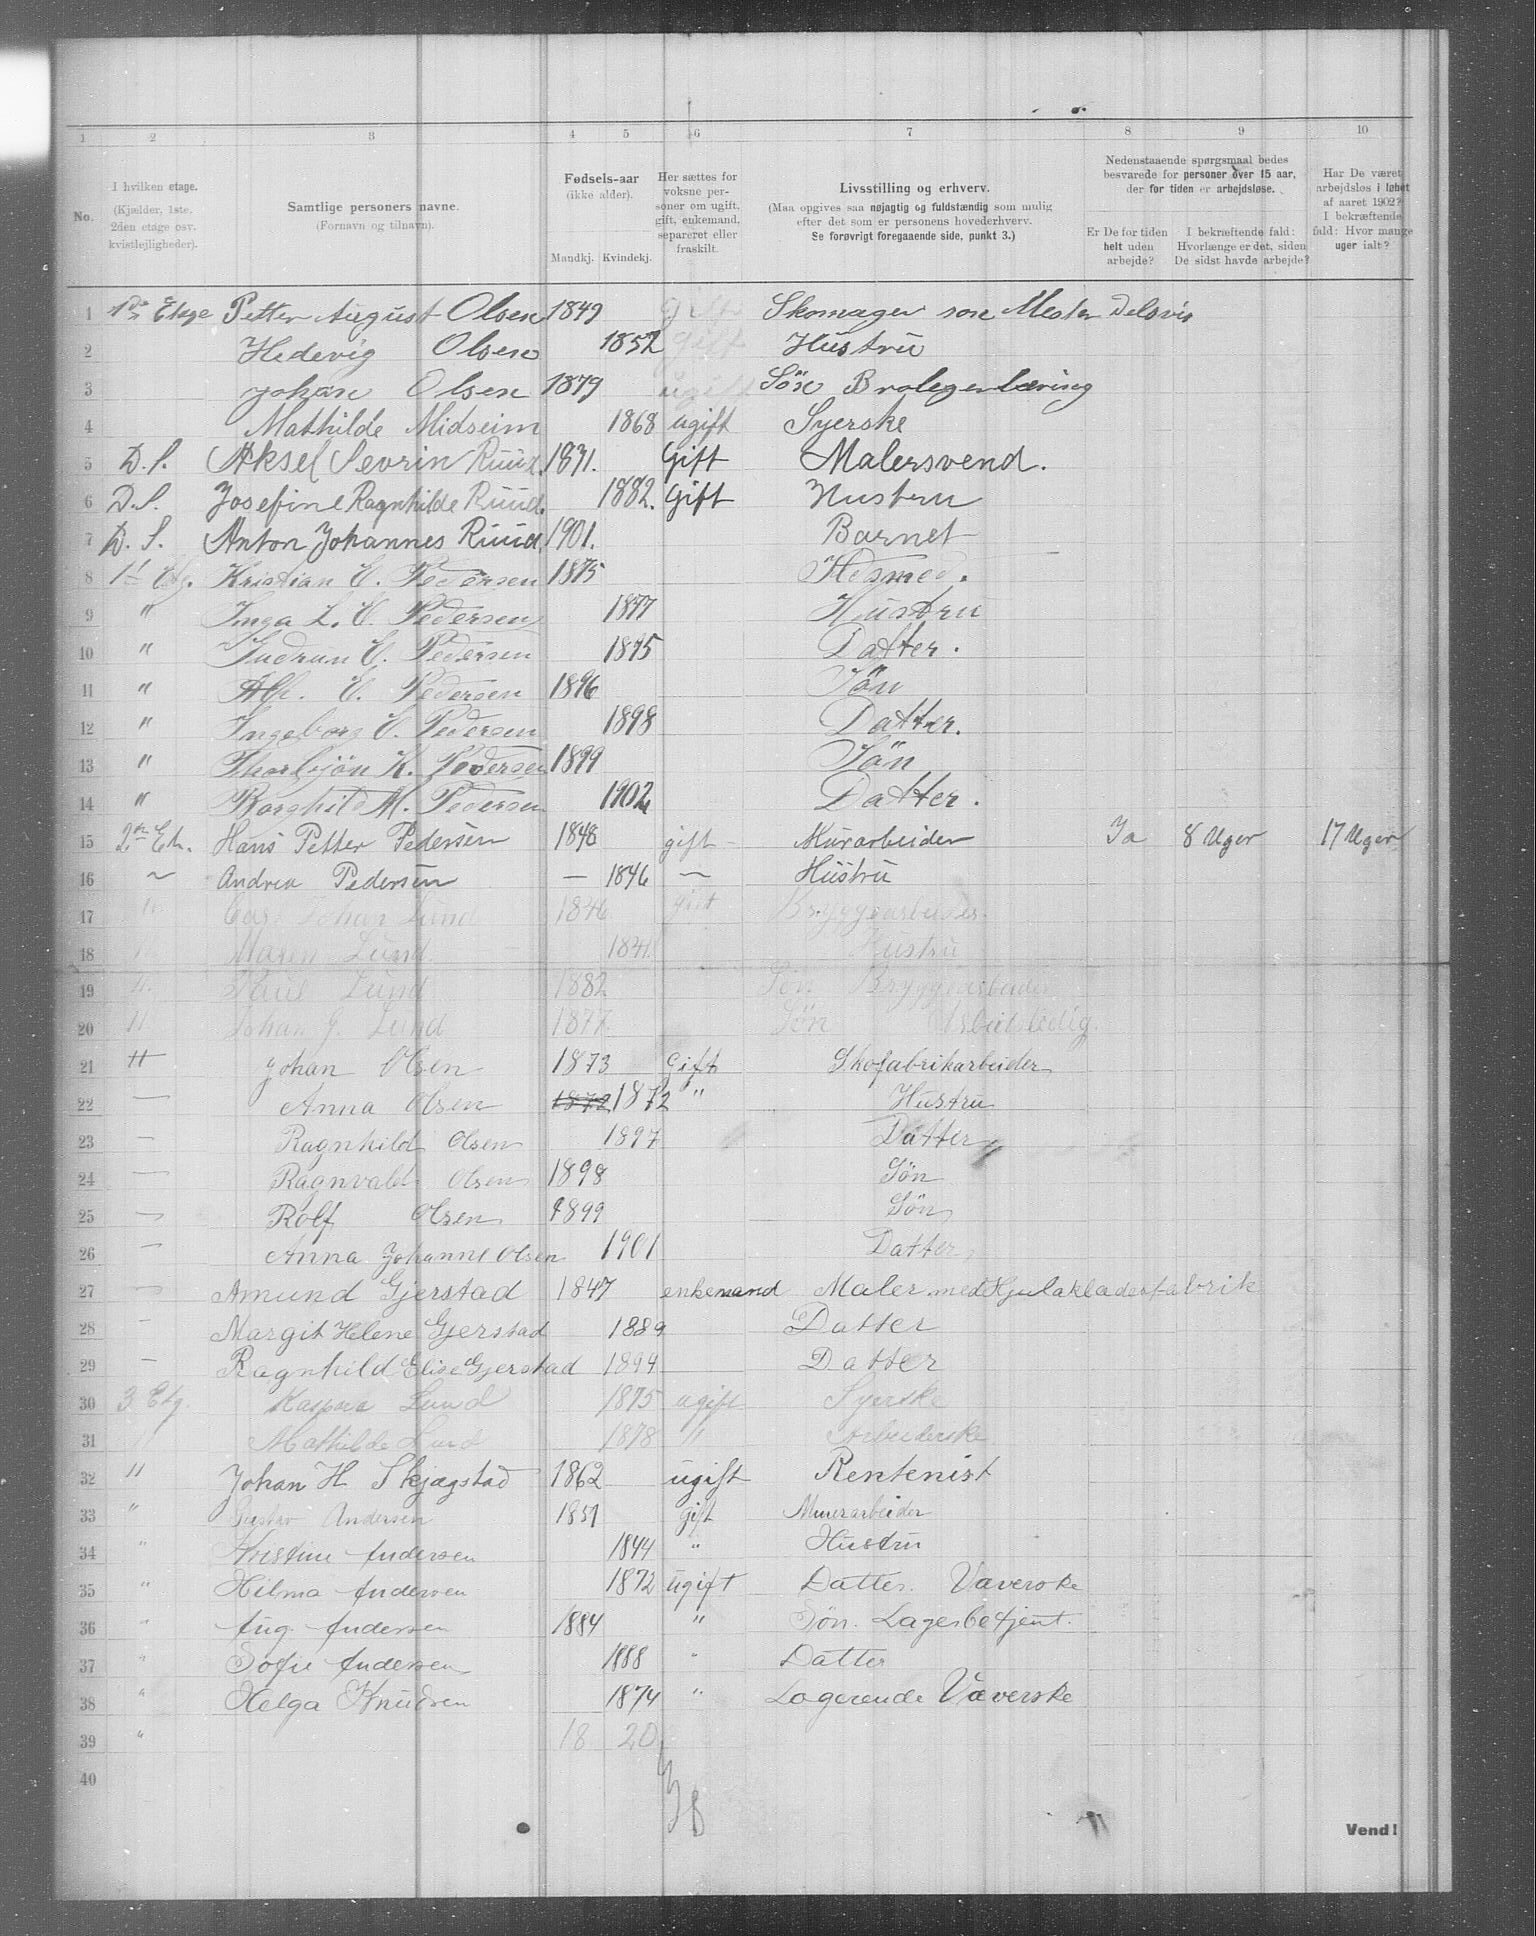 1 2 3 4 5 6 7 8 9 10
No.
I hvilken etage.
(Kjælder, 1ste.
2den etage osv.
kvistlejligheder).
Samtlige personers navne.
(Fornavn og tilnavn).
Fødsels-aar
(ikke alder).
Mandkj. Kvindekj.
Her sættes for
voksne per-
soner om ugift,
gift, enkemand,
separeret eller
fraskilt.
Livsstilling og erhverv.
(Maa opgives saa nøjagtig og fuldstændig som mulig
efter det som er personens hovederhverv.
Se forøvrigt foregaaende side, punkt 3.)
Nedenstaaende spørgsmaal bedes
besvarede for personer over 15 aar,
der for tiden er arbejdsløse.
Er De for tiden
helt uden
arbejde?
I bekræftende fald:
Hvorlænge er det, siden
De sidst havde arbejde?
Har De været
arbejdsløs i løbet
af aaret 1902?
I bekræftende
fald: Hvor mange
uger ialt?
1 1ste Etage Petter August Olsen 1849 gift Skomager som Mester Delsvis
2 Hedevig Olsen 1852 gift Hustru
3 Johan Olsen 1879 ugift Sön Brolegerlæring
4 Mathilde Midseim 1868 ugift Syerske
5 D. S. Aksel Sevrin Ruud. 1871. Gift Malersvend.
6 D. S. Josefine Ragnhilde Ruud. 1882. Gift Hustru
7 D. S. Anton Johannes Ruud. 1901. Barnet
8 1ste Etg. Kristian E. Pedersen 1875
9 " Inga L. E. Pedersen 1877 Hustru
10 " Gudrun E. Pedersen 1895 Datter.
11 " Alf. E. Pedersen 1896 Sön
12 " Ingeborg E. Pedersen 1898 Datter.
13 " Thorbjön K. Pedersen 1899 Sön
14 " Borghild M. Pedersen 1902 Datter.
15 2en Et. Hans Petter Pedersen 1848 gift Murarbeider Ja 8 Uger 17 Uger
16 ~ Andrea Pedersen — 1846 ~ Hustru
17 " Carl Johan Lund 1846 gift Bryggearbeider
18 " Maren Lund 1841 Hustru
19 " Paul Lund 1882 Søn Bryggearbeider
20 " Johan G. Lund 1877 Sön Arbeidsledig.
21 " Johan Olsen 1873 Gift Skofabrikarbeider
22 — Anna Olsen 1872 1872 " Hustru
23 — Ragnhild Olsen 1897 Datter
24 — Ragnvald Olsen 1898 Sön
25 — Rolf Olsen 1899 Sön
26 — Anna Johanne Olsen 1901 Datter
27 — Amund Gjerstad 1847 enkemand Maler med Hjulakladerfabrik
28 — Margit Helene Gjerstad 1889 Datter
29 — Ragnhild Elise Gjerstad 1894 Datter
30 3 Etg. Kaspara Lund 1875 ugift Syerske
31 " Mathilde Lund 1878 " Arbeiderske
32 " Johan H. Skjægstad 1862 ugift Rentenist
33 " Gustav Andersen 1851 gift Murerarbeider
34 " Kristine Andersen 1844 " Hustru
35 " Hilma Andersen 1872 ugift Datter. Vaverske
36 " Aug. Andersen 1884 " Sön. Lagerbetjent.
37 " Sofie Andersen 1888 " Datter
38 " Helga Knudsen 1874 " Logerende Væverske
39 " 18 20
40
38
Vend!